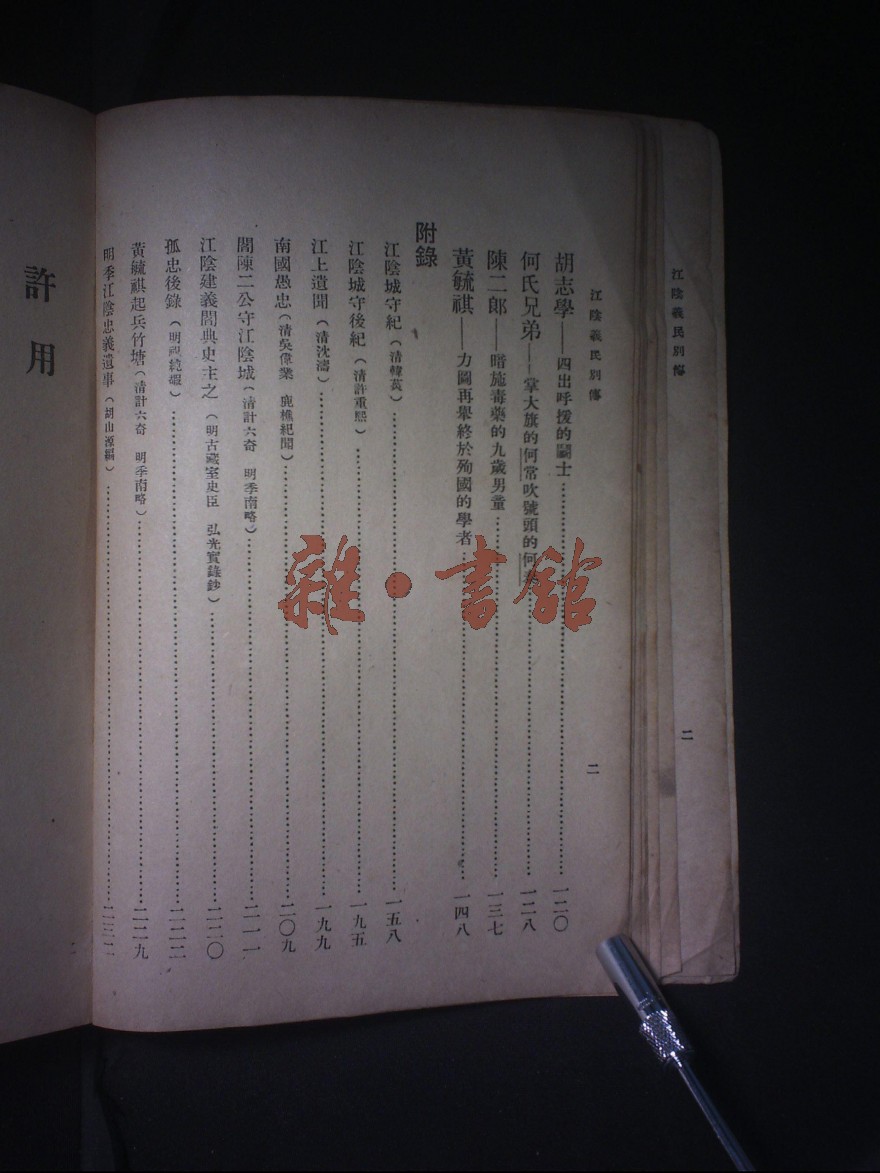 江陰義民別傳
二
江陰義民別傳
二
胡志學——四出呼援的鬭士 一二〇
何氏兄弟——掌大旗的何常吹號頭的何 一二八
陳二郎——暗施毒藥的九歲男童 一三七
黃毓祺——力圖再舉終於殉國的學者 一四八
附錄
江陰城守紀(清韓菼) 一五八
江陰城守後紀(清許重熙) 一九五
江上遺聞(清沈濤) 一九九
南國愚忠(清吳偉業 鹿樵紀聞) 二〇九
閻陳二公守江陰城(清計六奇 明季南略) 二一一
江陰建義閻典史主之(明古藏室史臣 弘光實錄鈔) 二二〇
孤忠後錄(明祝純嘏) 二二二
黃毓祺起兵竹塘(清計六奇 明季南略) 二二九
明季江陰忠義遺事(胡山源編) 二三二
許用
雜·書館